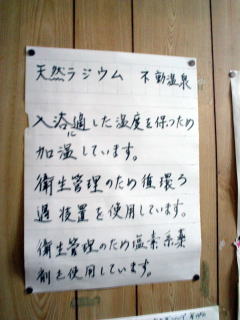 天然ラジウム　不動温泉
入浴に適した温度を保つため
加温しています。
衛生管理のため循環ろ
過装置を使用しています。
衛生管理のため塩素系薬
剤を使用しています。